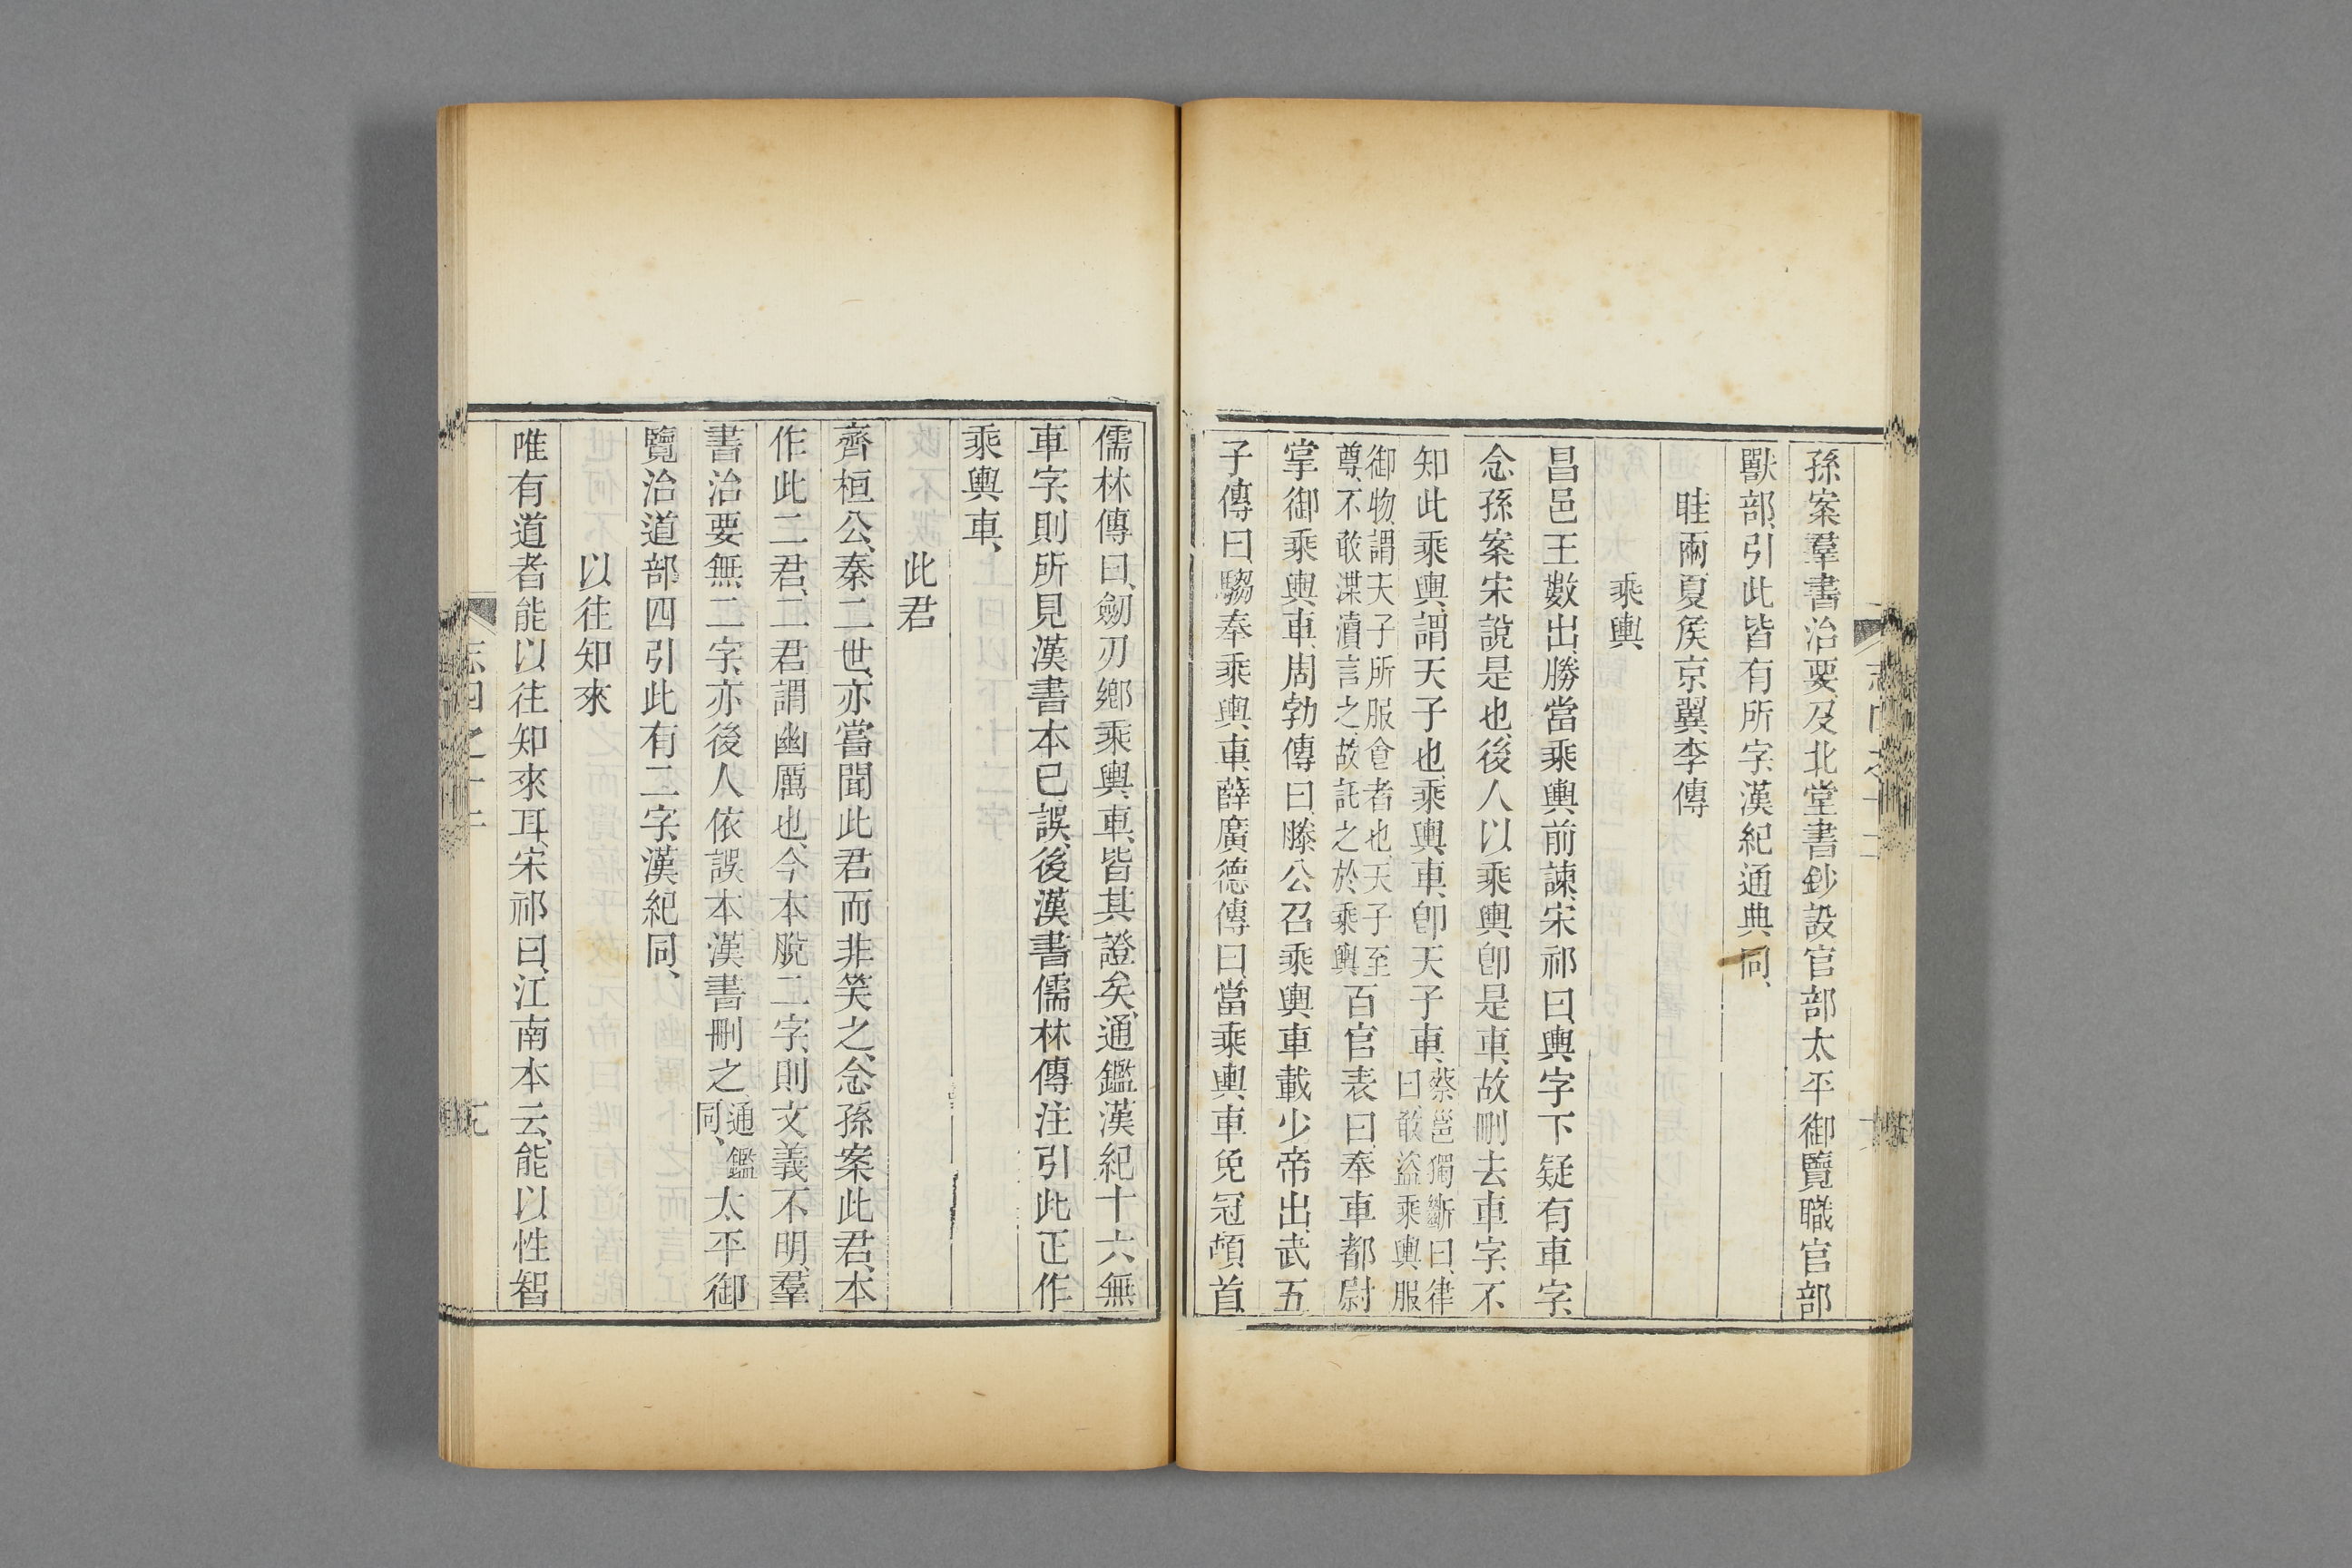 孫案羣書治要、及北堂書鈔設官部太平御覽職官部
獸部、引此皆有所字、漢紀通典同、
眭兩夏矦京翼李傳
乘輿
昌邑王數出、勝當乘輿前諫、宋祁曰、輿字下疑有車字、
念孫案宋說是也、後人以乘輿卽是車、故刪去車字、不
知此乘輿、謂天子也、乘輿車、卽天子車、蔡邕獨斷曰、律
曰、敢盜乘輿服
御物、謂天子所服食者也、天子至
尊、不敢渫瀆言之、故託之於乘輿百官表曰、奉車都尉
掌御乘輿車、周勃傳曰、滕公召乘輿車載少帝出、武五
子傳曰、騶奉乘輿車、薛廣德傳曰、當乘輿車免冠頓首
儒林傳曰、劒刃鄉乘輿車、皆其證矣、通鑑漢紀十六、無
車字、則所見漢書本已誤、後漢書儒林傳注引此正作
乘輿車、
此君
齊桓公、秦二世、亦嘗聞此君而非笑之、念孫案此君、本
作此二君、二君謂幽厲也、今本脫二字、則文義不明、羣
書治要無二字、亦後人依誤本漢書刪之、通鑑
同、太平御
覽治道部四引此有二字、漢紀同、
以往知來
唯有道者能以往知來耳、宋祁曰、江南本云、能以性智